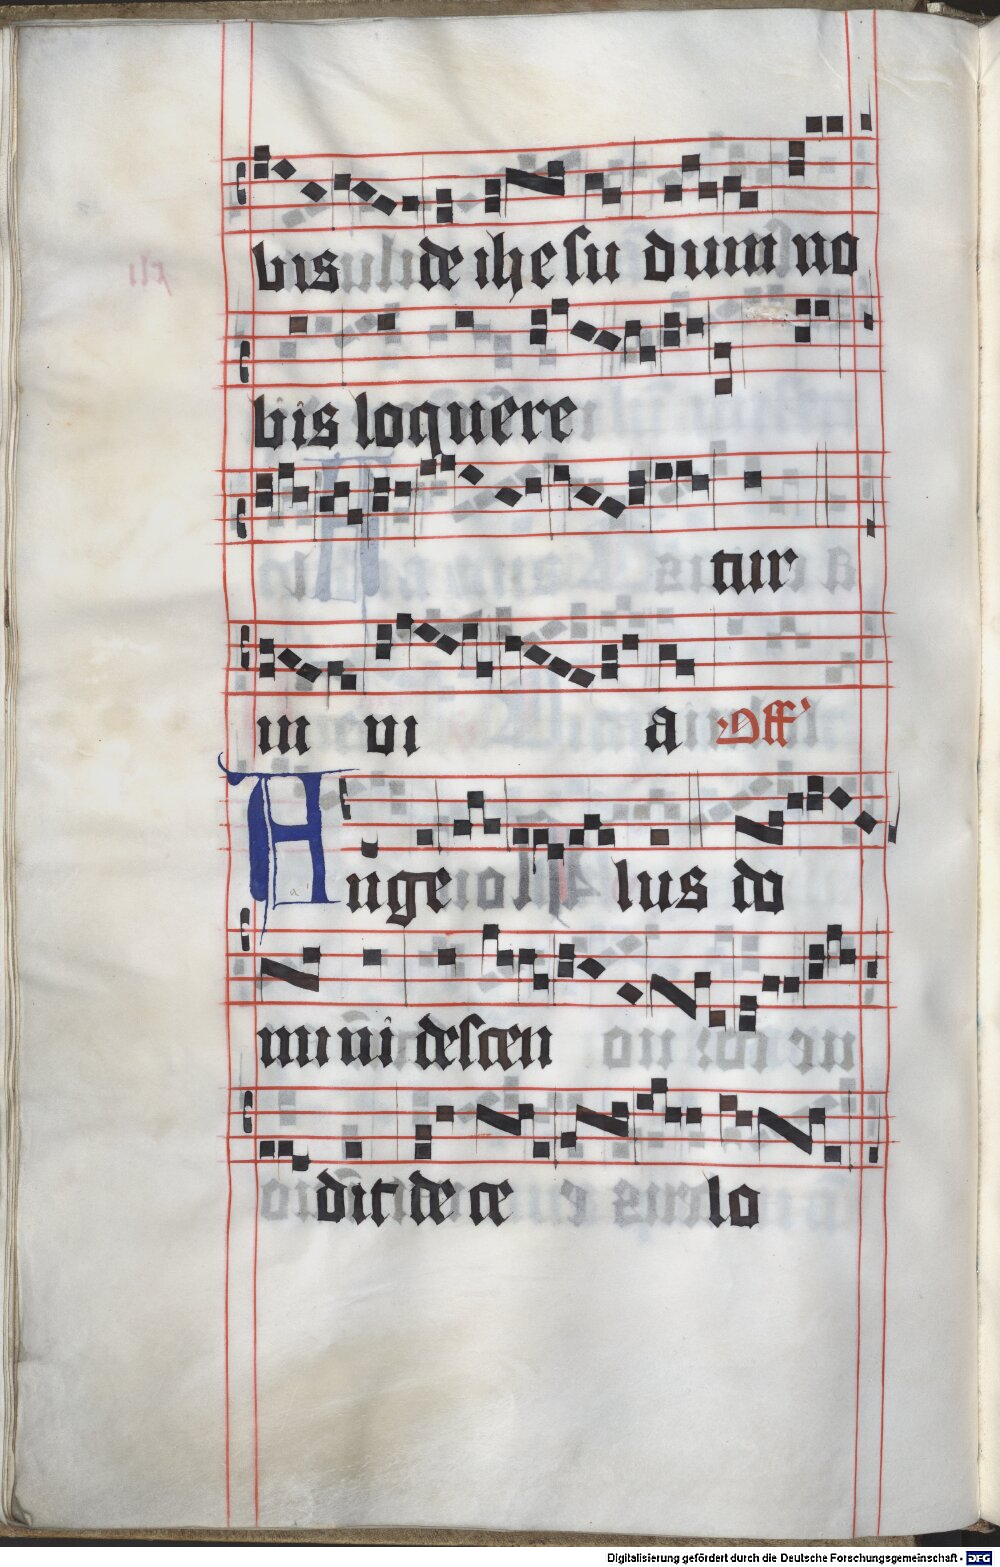 bis de ihesu dum no
bis loquere
tur
in vi a Off
Ange lus do
mini descen
dit de ce lo
Digitalisierung gefördert durch die Deutsche Forschungsgemeinschaft - DFG